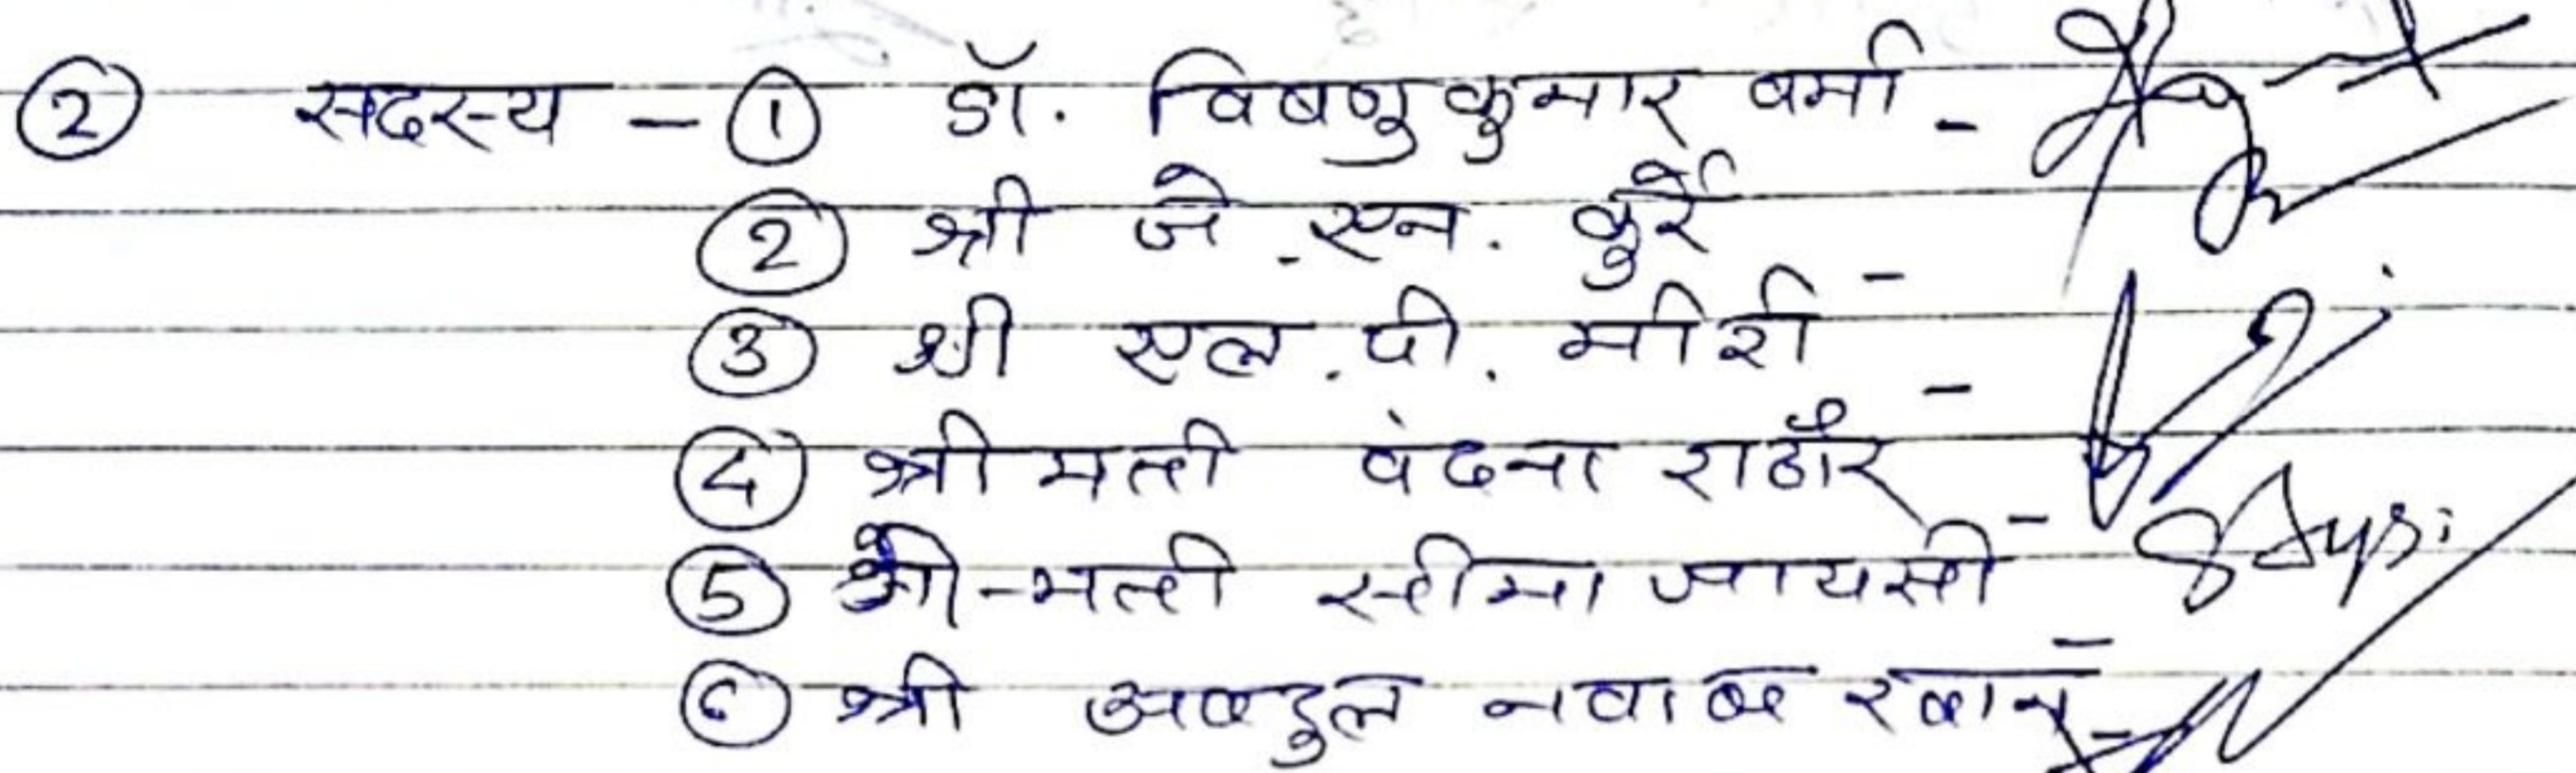 ② सदस्य - ① डॉ. विष्णु कुमार वर्मा -
② श्री जे. एन. कुर्रे -
③ श्री एल. पी. मीरी -
④ श्रीमती वंदना राठौर -
⑤ श्रीमती सीमा जायसी -
⑥ श्री अब्दुल नवाब खान -